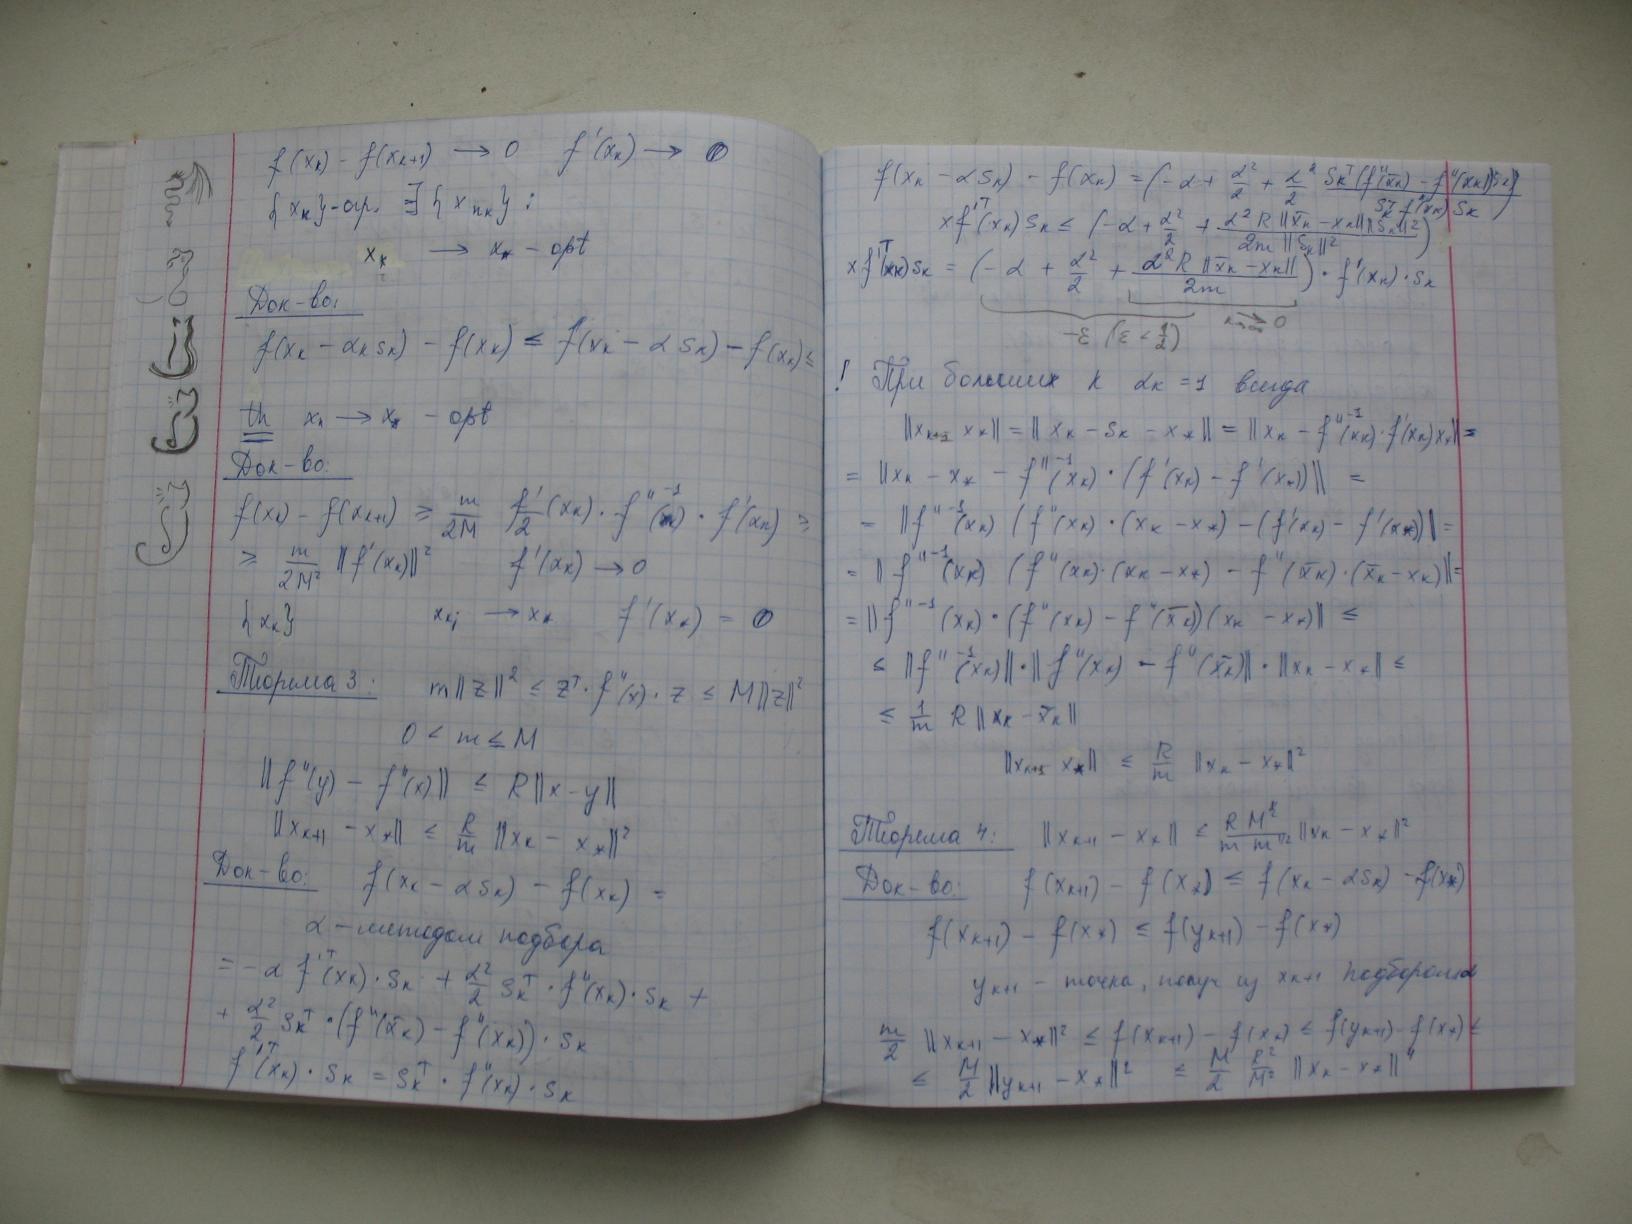 f(xₖ) - f(xₖ₊₁) → 0 f'(xₖ) → 0
{xₖ}-огр. ∃ {xₙₖ} :
xₖ → x* - opt
Док-во:
f(xₖ - αₖsₖ) - f(xₖ) ≤ f(xₖ - αsₖ) - f(xₖ) ≤
th xₙ → x* - opt
Док-во:
f(xₖ) - f(xₖ₊₁) ≥ m/2M f'/2 (xₖ) · f''⁻¹(xₖ) · f'(xₖ) ≥
≥ m/2M² ||f'(xₖ)||² f'(xₖ) → 0
{xₖ} xₖⱼ → x* f'(x*) = 0
Теорема 3: m||z||² ≤ zᵀ · f''(x) · z ≤ M||z||²
0 < m ≤ M
||f''(y) - f''(x)|| ≤ R||x-y||
||xₖ₊₁ - x*|| ≤ R/m ||xₖ - x*||²
Док-во: f(xₖ - αsₖ) - f(xₖ) =
α - методом подбора
= -α f'ᵀ(xₖ) · sₖ + α²/2 sₖᵀ · f''(xₖ) · sₖ +
+ α²/2 sₖᵀ · (f''(x̄ₖ) - f''(xₖ)) · sₖ
f'ᵀ(xₖ) · sₖ = sₖᵀ · f''(xₖ) · sₖ
f(xₖ - αsₖ) - f(xₖ) = (-α + α²/2 + α²/2 sₖᵀ(f''(x̄ₖ) - f''(xₖ))sₖ / sₖᵀ f''(xₖ) sₖ)
x f'ᵀ(xₖ) sₖ ≤ (-α + α²/2 + α² R ||x̄ₖ - xₖ|| ||sₖ||² / 2m ||sₖ||²)
x f'ᵀ(xₖ) sₖ = (-α + α²/2 + α² R ||x̄ₖ - xₖ|| / 2m) · f'(xₖ) · sₖ
-ε (ε < 1/2) k→∞ → 0
! При больших k αₖ = 1 всегда
||xₖ₊₁ x*|| = ||xₖ - sₖ - x*|| = ||xₖ - f''⁻¹(xₖ) · f'(xₖ) x*|| =
= ||xₖ - x* - f''⁻¹(xₖ) · (f'(xₖ) - f'(x*))|| =
= ||f''⁻¹(xₖ) (f''(xₖ) · (xₖ - x*) - (f'(xₖ) - f'(x*))|| =
= ||f''⁻¹(xₖ) (f''(xₖ) · (xₖ - x*) - f''(x̄ₖ) · (x̄ₖ - xₖ)|| =
= ||f''⁻¹(xₖ) · (f''(xₖ) - f''(x̄ₖ)) (xₖ - x*)|| ≤
≤ ||f''⁻¹(xₖ)|| · ||f''(xₖ) - f''(x̄ₖ)|| · ||xₖ - x*|| ≤
≤ 1/m R ||xₖ - x̄ₖ||
||xₖ₊₁ x*|| ≤ R/m ||xₖ - x*||²
Теорема 4: ||xₖ₊₁ - x*|| ≤ R/m ||xₖ - x*||²
Док-во: f(xₖ₊₁) - f(x*) ≤ f(xₖ - αsₖ) - f(x*)
f(xₖ₊₁) - f(x*) ≤ f(yₖ₊₁) - f(x*)
yₖ₊₁ - точка, получ из xₖ₊₁ подбором α
m/2 ||xₖ₊₁ - x*||² ≤ f(xₖ₊₁) - f(x*) ≤ f(yₖ₊₁) - f(x*) ≤
≤ M/2 ||yₖ₊₁ - x*||² ≤ M/2 R²/M² ||xₖ - x*||⁴